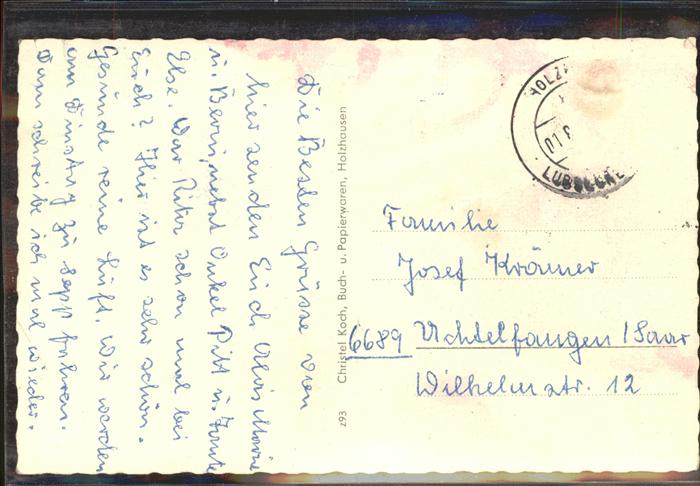 Die Besten Grüsse von
hier senden Euch Alois Marie
u. Berni, nebst Onkel Pitt u. Tante
Else. War Peter schon mal bei
Euch? Hier ist es sehr schön.
Gesunde reine Luft. Wir werden
am Dinstag zu Sepp fahren.
Dann schreibe ich mal wieder.
z93 Christel Koch, Buch- u. Papierwaren, Holzhausen
HOLZ
01
LÜBBECKE
Familie
Josef Krämer
6689 Uchtelfangen / Saar
Wilhelmstr. 12